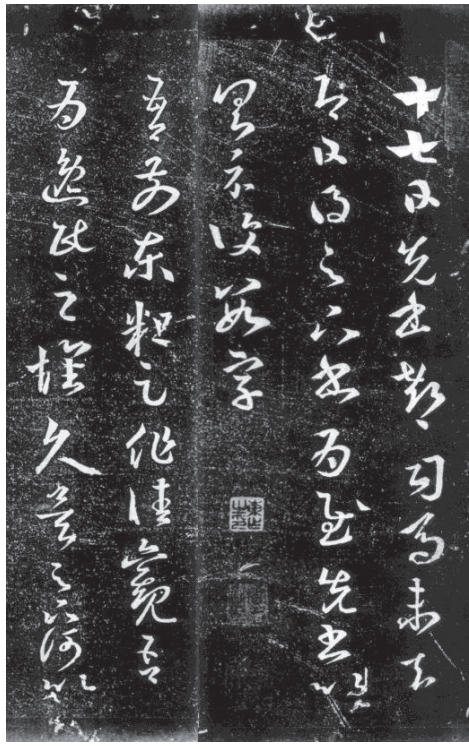 十七日先書郗司馬未去
即日得足下書為慰先書以具
示復數字
吾前東粗足作佳觀吾
為逸民之懷久矣足下何以